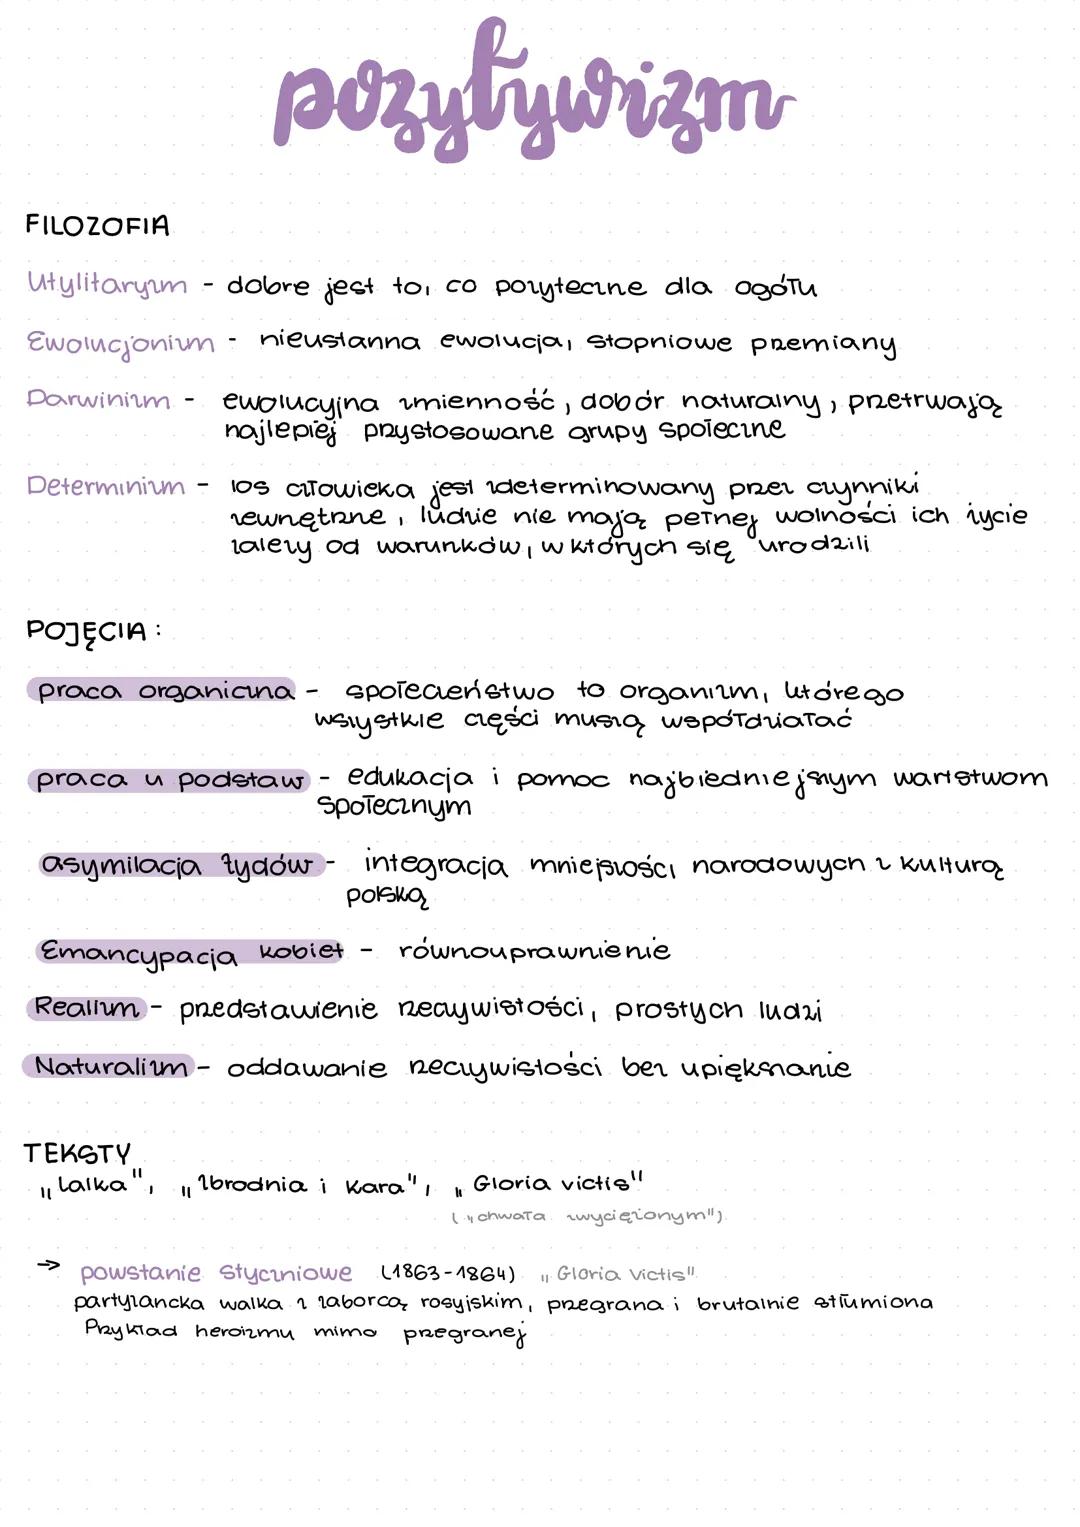 pozytywizm
FILOZOFIA
Utylitaryzm - dobre jest to, co pożyteczne dla ogółu
Ewolucjonizm - nieustanna ewolucja, stopniowe przemiany
Darwinizm - ewolucyjna zmienność, dobór naturalny, przetrwają
najlepiej przystosowane grupy społeczne
Determinizm - los człowieka jest zdeterminowany przez czynniki
zewnętrzne, ludzie nie mają pełnej wolności ich życie
zależy od warunków, w których się urodzili
POJĘCIA:
praca organiczna - społeczeństwo to organizm, którego
wszystkie części muszą współdziałać
praca u podstaw - edukacja i pomoc najbiedniejszym warstwom
społecznym
asymilacja żydów - integracja mniejszości narodowych z kulturą
polską
Emancypacja kobiet - równouprawnienie
Realizm - przedstawienie rzeczywistości, prostych ludzi
Naturalizm - oddawanie rzeczywistości bez upiększania
TEKSTY
„Lalka", „Zbrodnia i Kara", „Gloria victis"
(„chwała zwyciężonym")
→ powstanie styczniowe (1863-1864) „Gloria Victis"
partyzancka walka z zaborcą rosyjskim, przegrana i brutalnie stłumiona
Przykład heroizmu mimo przegranej